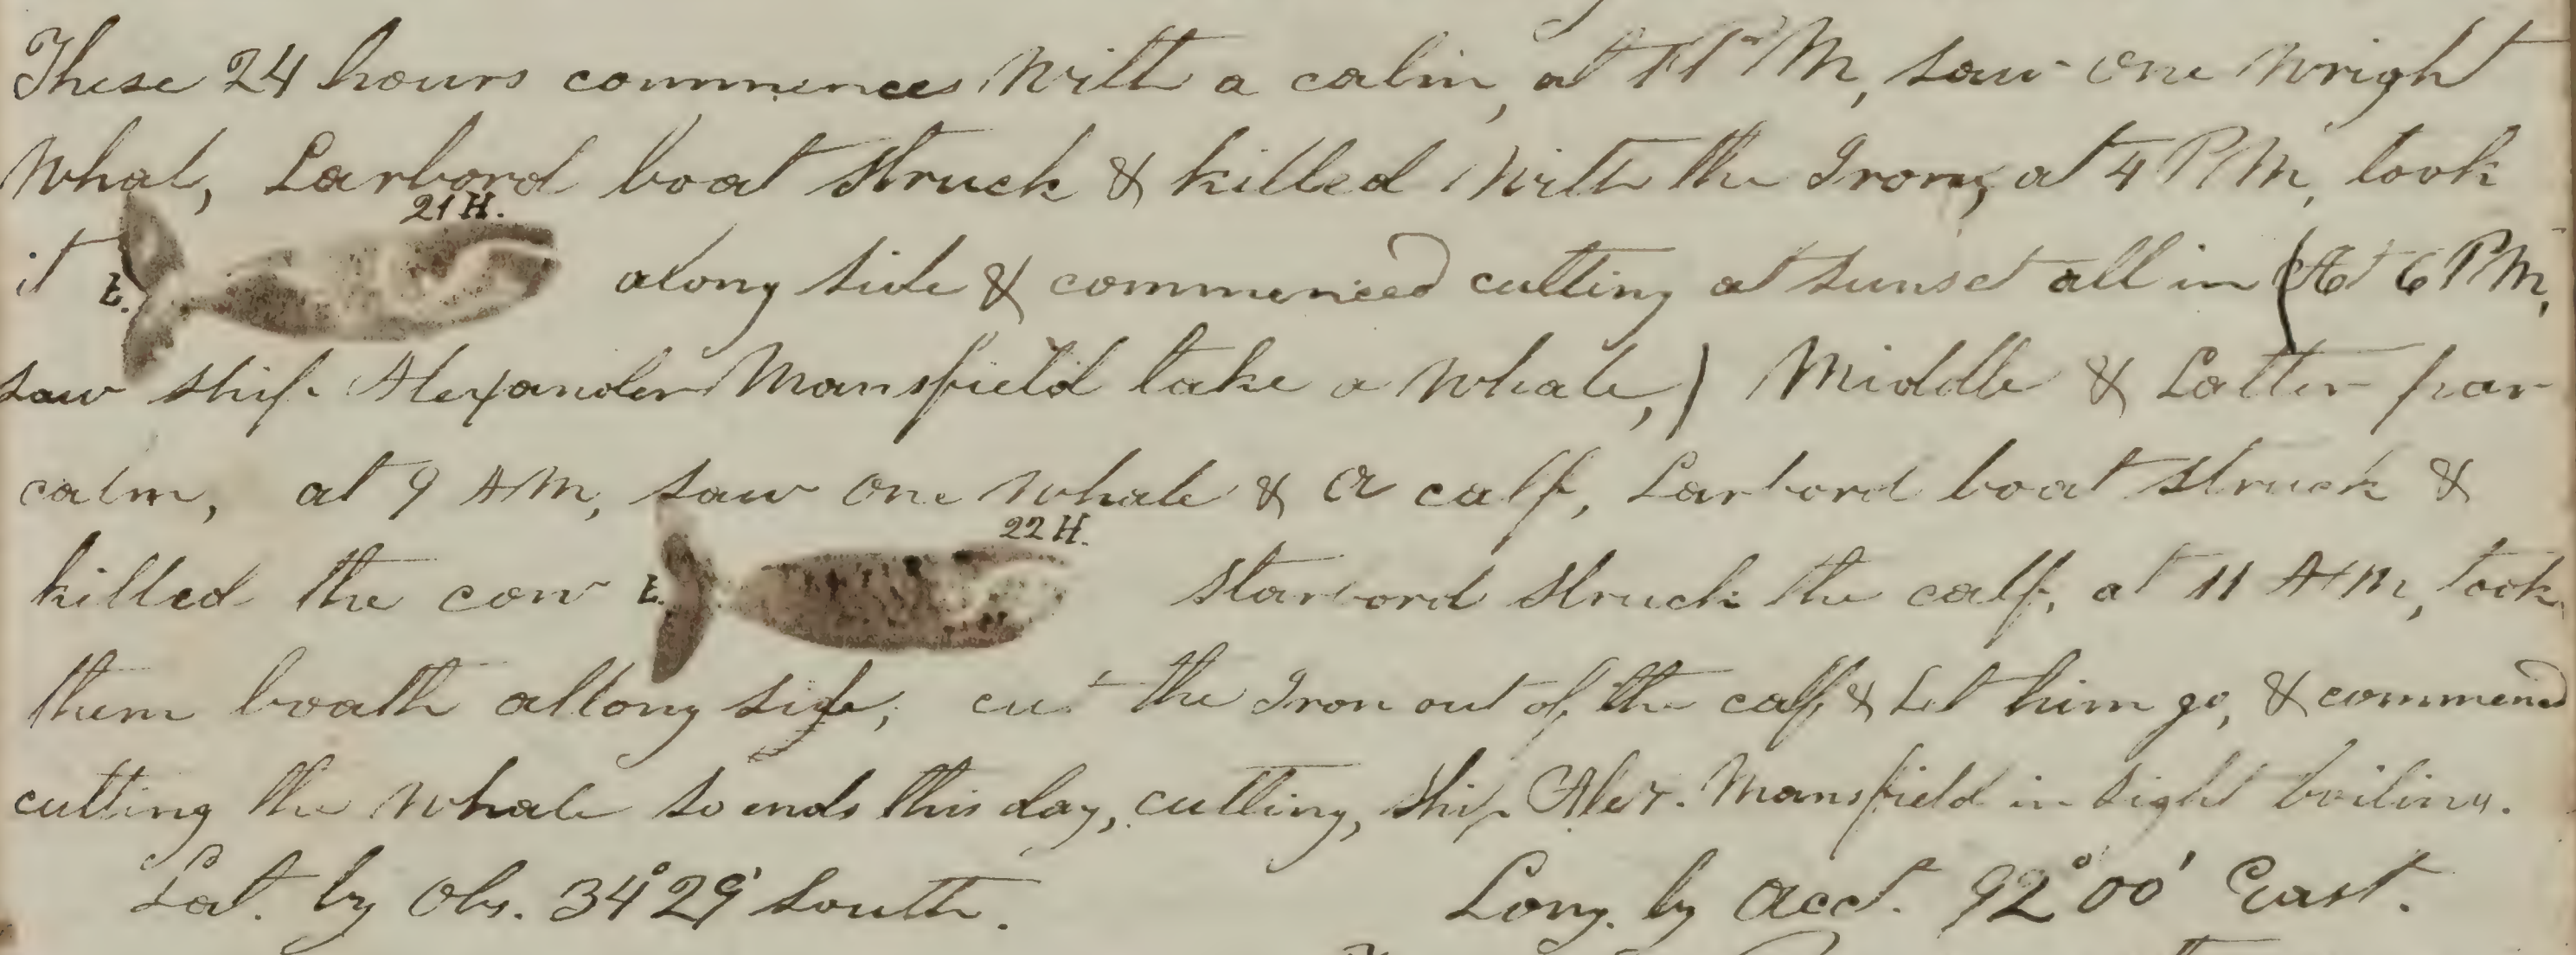 These 24 hours commences with a calm, at PM, saw one wright
whal, Larbord boat struck & killed with the Iron, at 4 PM, took
21 H.
it L. along side & commenced cutting at sunset all in (At 6 PM,
saw ship Alexander Mansfield take a whale,) Middle & Latter par
calm, at 9 AM, saw one whale & a calf, Larbord boat struck &
22 H.
killed the cow L. starbord struck the calf, at 11 AM, took
them boath allong side, cut the Iron out of the calf & Let him go, & commenced
cutting the whale so ends this day, cutting, ship Alex. Mansfield in sight boiling.
Lat. by Obs. 34° 29' South. Long. by Acct. 92° 00' East.